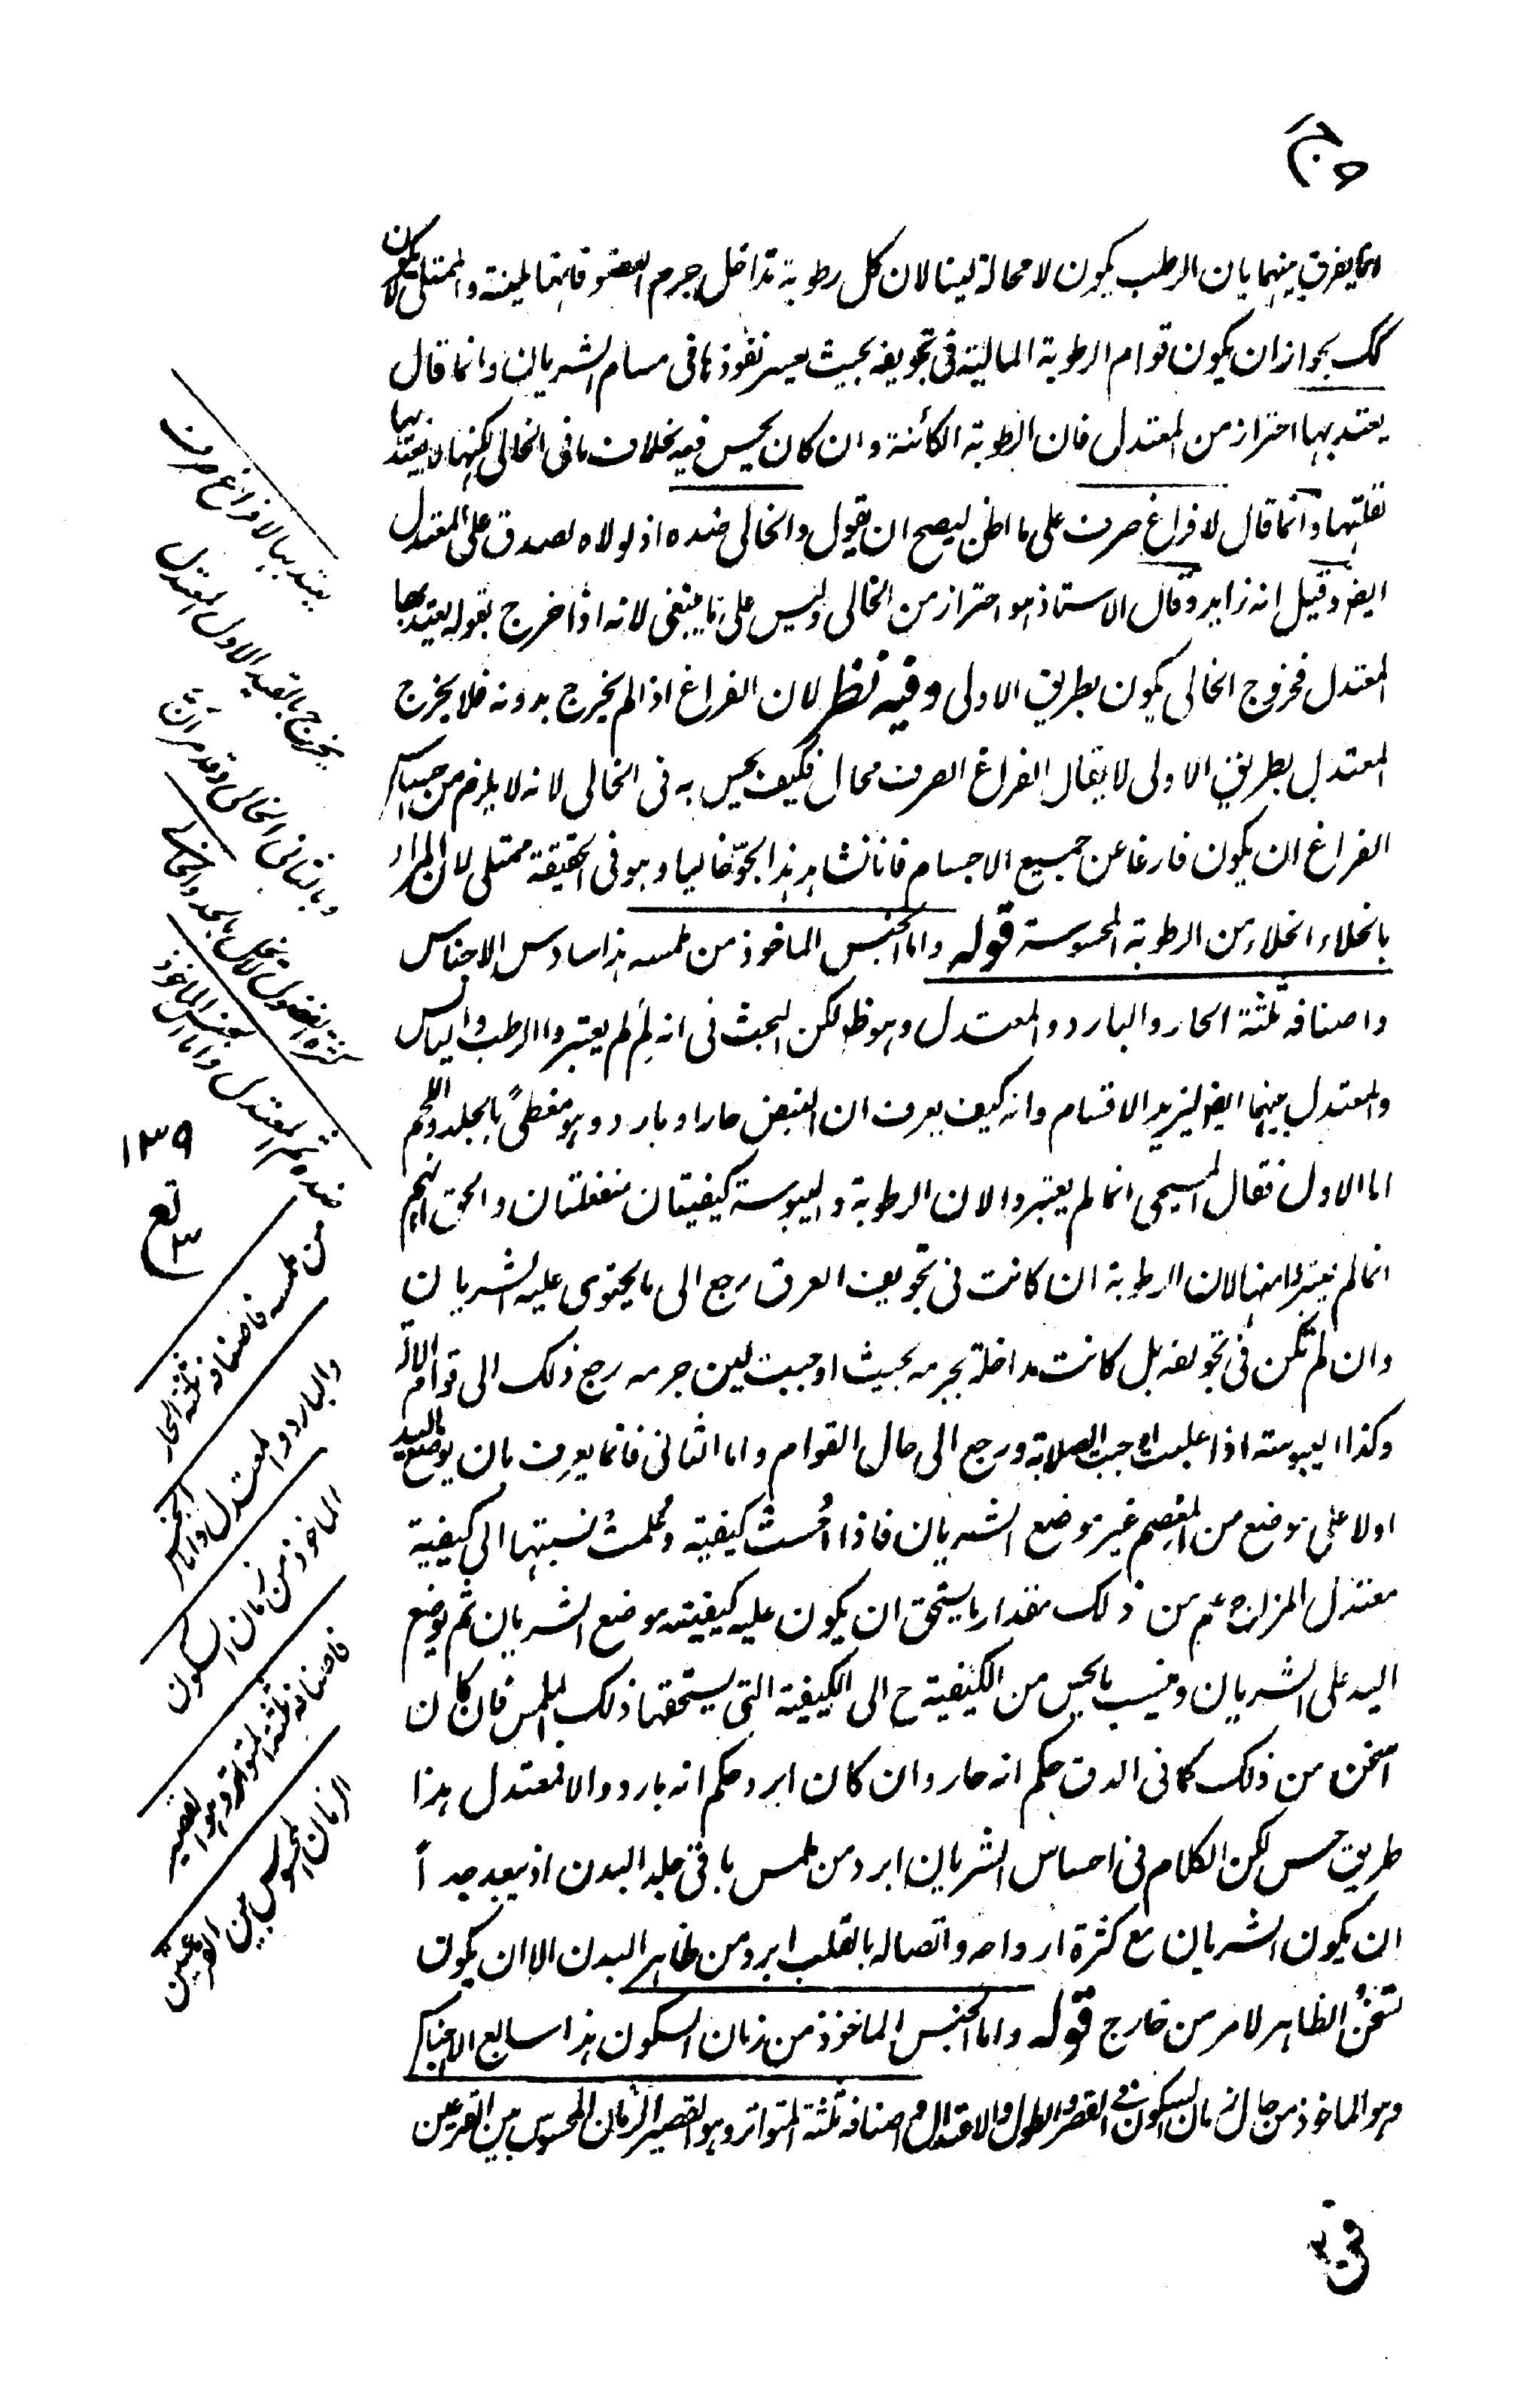 وانما يفرق بينهما بان الرطب يكون لا محالة لينا لان كل رطوبة تداخل جرم العضو فانها ملينة والممتلى لا يكون
كك بجواز ان يكون قوام الرطوبة المالية فى تجويفه بحيث يعسر نفوذها فى مسام الشريان وانما قال
يعتد بها احتراز من المعتدل فان الرطوبة الكائنة وان كان يحس فيه بخلاف ما فى الخالى لكنها لا يعتد بها
لقلتها وانما قال لا فراغ صرف على ما اظن ليصح ان يقول والخالى ضده اذ لولاه لصدق على المعتدل
ايضا وقيل انه زايد وقال الاستاذ هو احتراز من الخالى وليس على ما ينبغى لانه اذا خرج بقوله يعتد بها
المعتدل فخروج الخالى يكون بطريق الاولى وفيه نظر لان الفراغ اذا لم يخرج بدونه فلا يخرج
المعتدل بطريق الاولى لا يقال الفراغ الصرف محال فكيف يحس به فى الخالى لانه لا يلزم من احساس
الفراغ ان يكون فارغا عن جميع الاجسام فانا نشاهد هذا الجو خاليا وهو فى الحقيقة ممتلى لان المراد
بالخلاء الخلاء من الرطوبة المحسوسة قوله واما الجنس الماخوذ من ملمسه هذا سادس الاجناس
واصنافه ثلثة الحار والبارد والمعتدل وهو ظ لكن البحث فى انه لم لم يعتبروا الرطب واليابس
والمعتدل بينهما ايضا ليزيد الاقسام وانه كيف يعرف ان النبض حار او بارد وهو مغطى بالجلد واللحم
اما الاول فقال المسيحى انما لم يعتبروا لان الرطوبة واليبوسة كيفيتان منفعلتان والحق انهم
انما لم يعتبروهما لان الرطوبة ان كانت فى تجويف العرق رجع الى ما يحتوى عليه الشريان
وان لم تكن فى تجويفه بل كانت مداخلة بجرمه بحيث اوجبت لين جرمه رجع ذلك الى قوام الالة
وكذا اليبوسته اذا غلبت اوجب الصلابة ورجع الى حال القوام واما الثانى فانما يعرف بان يوضع اليد
اولا على موضع من المعصم غير موضع الشريان فاذا احست كيفيته وعلمت نسبتها الى كيفية
معتدل المزاج علم من ذلك مقدار ما يستحق ان يكون عليه كيفيته موضع الشريان ثم يوضع
اليد على الشريان وينسب ما يحس من الكيفية ح الى الكيفية التى يستحقها ذلك الملمس فان كان
اسخن من ذلك كما فى الدق حكم انه حار وان كان ابرد حكم انه بارد والا فمعتدل هذا
طريق حسن لكن الكلام فى احساس الشريان ابرد من ملمس باقى جلد البدن اذ يبعد جدا
ان يكون الشريان مع كثرة ارواحه واتصاله بالقلب ابرد من ظاهر البدن الا ان يكون
تسخن الظاهر لامر من خارج قوله واما الجنس الماخوذ من زمان السكون هذا سابع الاجناس
وهو الماخوذ من حال زمان السكون فى القصر والطول والاعتدال واصنافه ثلثة المتواتر وهو القصير الزمان المحسوس بين القرعتين
يعتد بها لا فراغ صرف
يخرج بالقيد الاول المعتدل
وبالثانى الخالى
ضده ثم المعتدل واما الجنس الماخوذ
١٣٩
من ملمسه فاصنافه ثلثة الحار
والبارد والمعتدل واما الجنس
الماخوذ من زمان السكون
فاصنافه ثلثة المتواتر وهو القصير
الزمان المحسوس بين القرعتين